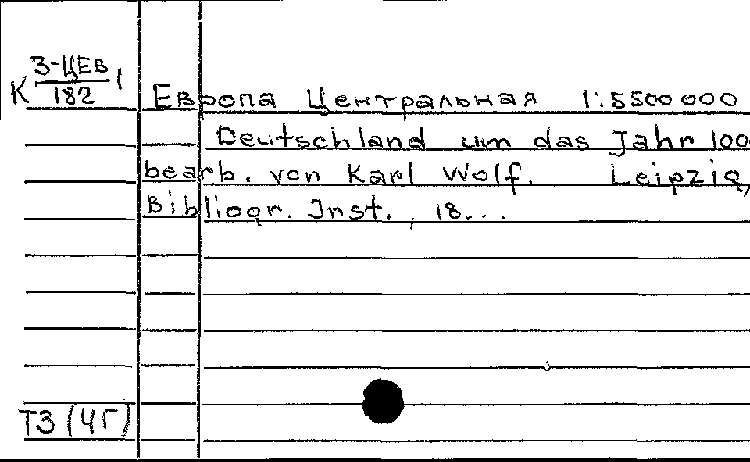 К 3-ЦЕВ / 182 1
Европа Центральная 1:5500000
Deutschland um das Jahr 100
bearb. von Karl Wolf. Leipzig,
Bibliogr. Inst., 18...
Т3 (4Г)